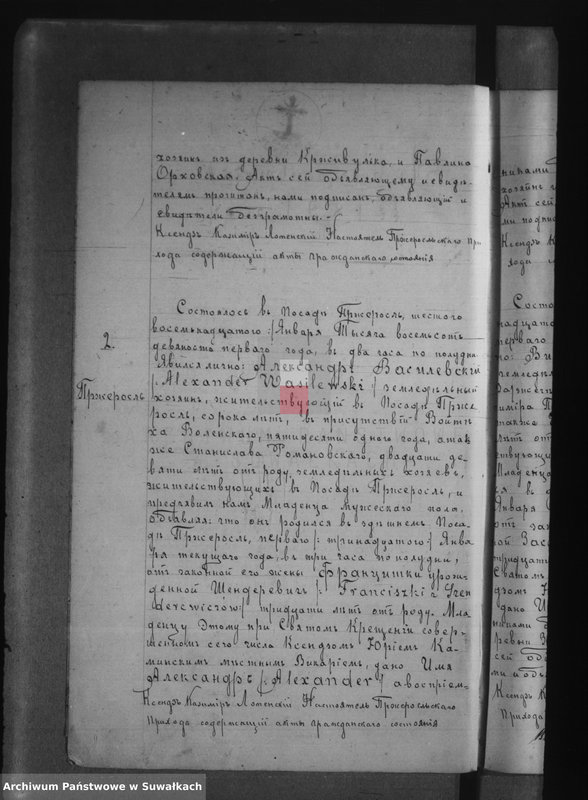 хозяин из деревни Кривулька, и Павлина
Орховская. Акт сей объявляющему и свиде-
телям прочитан, нами подписан, объявляющий и
свидетели безграмотны.-
Ксендзъ Казимiръ Лопенскiй Настоятель Пржеросльского При
хода содержащiй акты гражданского состоянiя
2.
Пржеросль
Состоялось въ Посадѣ Пржеросль, шестого
восемьнадцатого / Января Тысяча восемьсотъ
девяносто перваго года, въ два часа по полудни
Явился лично: Александръ Василевскiй
/: Alexander Wasilewski / земледѣльный
хозяинъ, жительствующiй въ Посадѣ Прже
росль, сорока лѣтъ, въ присутствiи Войтѣ
ха Воленскаго, пятидесяти одного года, а так
же Станислава Романовскаго, двадцати де-
вяти лѣтъ отъ роду, земледѣльныхъ хозяевъ,
жительствующихъ въ Посадѣ Пржеросль, и
предъявилъ намъ Младенца Мужескаго пола,
объявляя: что онъ родился въ здѣшнемъ Поса-
дѣ Пржеросль, перваго /: тринадцатого / Янва
ря текущаго года, въ три часа по полудни,
отъ законной его жены Францишки урож-
денной Шендеревичъ /: Franciszki z Szen
derewiczow / тридцати лѣтъ отъ роду. Мла
денцу Этому при Святомъ Крещенiи совер-
шенномъ сего числа Ксендзомъ Юрiемъ Ка-
минскимъ мѣстнымъ Викарiемъ, дано Имя
Александръ /: Alexander / а воспрiем-
Ксендзъ Казимiръ Лопенскiй Настоятель Пржеросльского
Прихода содержащiй акты гражданского состоянiя
Archiwum Państwowe w Suwałkach